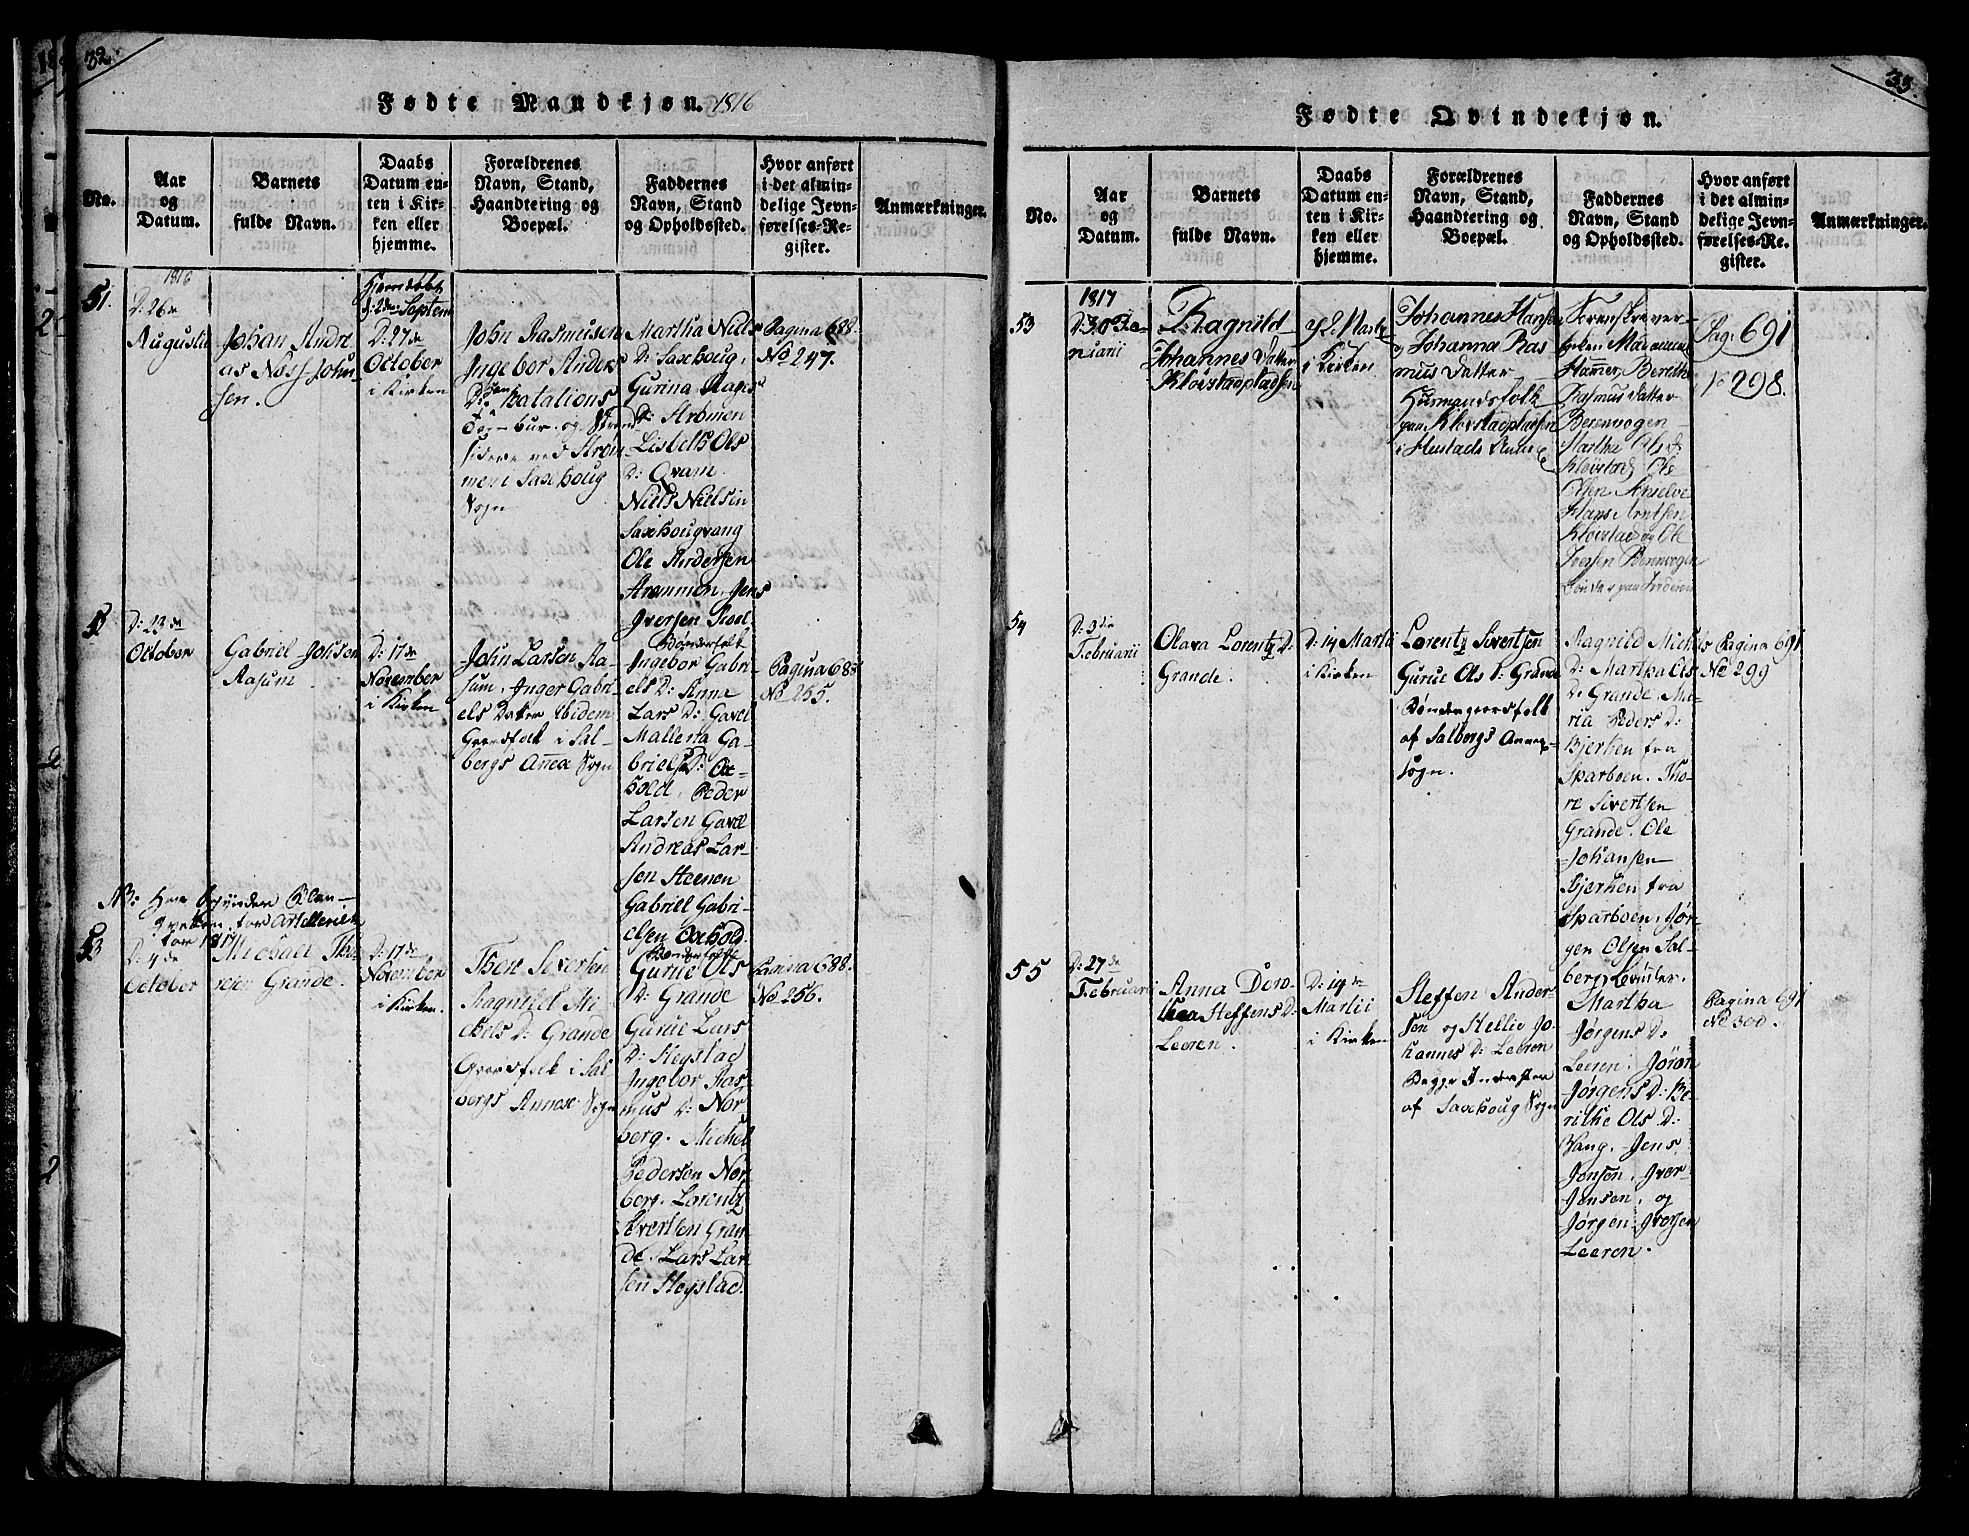 32.
Fødte Mandkjøn. 1816
No.
Aar
og
Datum.
Barnets
fulde Navn.
Daabs
Datum en-
ten i Kir-
ken eller
hjemme.
Forældrenes
Navn, Stand,
Haandtering og
Boepæl.
Faddernes
Navn, Stand
og Opholdssted.
Hvor anført
i det almin-
delige Jevn-
førelses-Re-
gister.
Anmærkninger.
51.
1816
D: 26de
Augustii
Johan Andre
as Johan-
sen.
Hjemdøbt
d: 2den Septem
D: 27de
October
i Kirken
John Rasmusen
Ingebor Anders
D: Batalions
Tambur og
sidere ved Strøm
men i Saxhoug
Sogn
Martha Niels
D: Saxhoug,
Gurina Aages
D: Strømen
Lisbeth Ols
D: Qvam.
Niels Nielsen
Saxhougvang
Ole Andersen
Strømmen, Jens
Iversen Roel
Bønderfolk
Pagina 688.
No 247.
52
D: 23de
October
Gabriel Johsen
Aasum
D: 17de
November
i Kirken
John Larsen Aa-
sum, Inger Gabri-
els Dater Ibidem
Gaardfolk i Sal-
bergs Annex Sogn
Ingebor Gabri-
els D: Anne
Lars D: Gavel
Mallena Ga-
briels D: Ox-
hold, Peder
Larsen Gavel
Andreas Lar-
sen Steenen
Gabriel Gabri-
elsen Oxhold.
Bønderfolk
Pagina 688
No 255.
NB: Her begynder Rlan-
for Artelleriet
for 1817
53
D: 4de
October
Michael Tho-
resen Grande.
D: 17de
November
i Kirken.
Thore Seversen
Ragnild Mi-
chels D: Grande
Gaardfolk i Sal
bergs Annex Sogn
Gurue Ols
D: Grande
Gurue Lars
D: Hegstad
Ingebor Ras-
mus D: Nor
berg. Michel
Pedersen Nor
berg. Lorentz
Sivertsen Gran
de. Lars Lar
sen Hegstad.
Pagina 688.
No 256.
33.
Fødte Qvindekjøn.
No.
Aar
og
Datum.
Barnets
fulde Navn.
Daabs
Datum en-
ten i Kir-
ken eller
hjemme.
Forældrenes
Navn, Stand,
Haandtering og
Boepæl.
Faddernes
Navn, Stand
og Opholdssted.
Hvor anført
i det almin-
delige Jevn-
førelses-Re-
gister.
Anmærkninger.
53
1817
D: 30 Ja-
nuarii
Ragnild
Johannes Datter
Kløvstadpladsen
2 Marts
i Kirken
Johannes Hansen
og Johanna Ras
mus Datter
Huusmandsfolk
paa Kløvstadpladsen
i Hustads Annex
Sorenskriver-
Hammer, Berithe
Rasmus Datter
Berenvogen
Marthe Ols D:
Kløvstad, Ole
Olsen
Hans Arntsen
Kløvstad og Ole
Iversen Berenvogen
Bønder paa Inderøen
Pag: 691
No 298.
54
D: 3die
Februarii
Olava Lorentz D:
Grande.
D: 14 Martii
i Kirken
Lorentz Sivertsen
Gurue Ols D: Grande
Bønder gaardsfolk
af Salbergs Annex-
Sogn.
Ragnild Michels
D: Martha Ols
D: Grande. Ma-
ria Peders D:
Bjerken fra
Sparboen. Tho-
re Sivertsen
Grande. Ole
Johansen
Bjerken fra
Sparboen. Jør-
gen Olsen Sal-
berg, Bønder.
Pagina 691
No 299
55
D: 27de
Februarii
Anna Doro-
thea Steffens D:
Leeren.
D: 14de
Martii
i Kirken
Steffen Ander-
sen og Hellie Jo-
hannes D: Leeren
Begge Inderster
af Saxhoug Sogn
Martha
Jørgens D:
Leeren. Joron
Jørgens D: Be-
rithe Ols D:
Vang. Jens
Jensen. Iver
Jensen, og
Jørgen Iversen
Leeren.
Pagina 691
No 300.